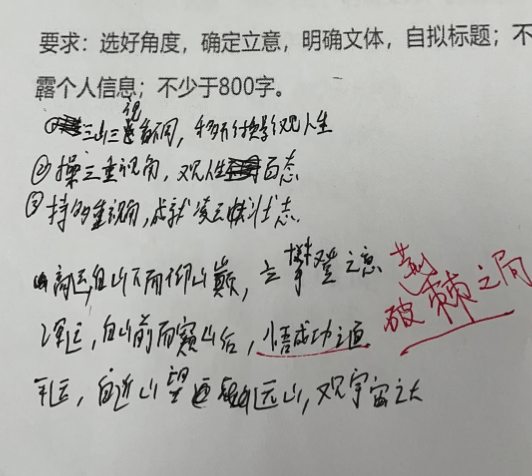 要求：选好角度，确定立意，明确文体，自拟标题；不
露个人信息；不少于800字。
①三山三视不同，移步换影观人生
②操三重视角，观人生百态
③持多重视角，成就凌云壮志
高远，自山下而仰山巅，立攀登之意
深远，自山前而窥山后，悟成功之道
平远，自近山望远山，观宇宙之大
破荆棘之局